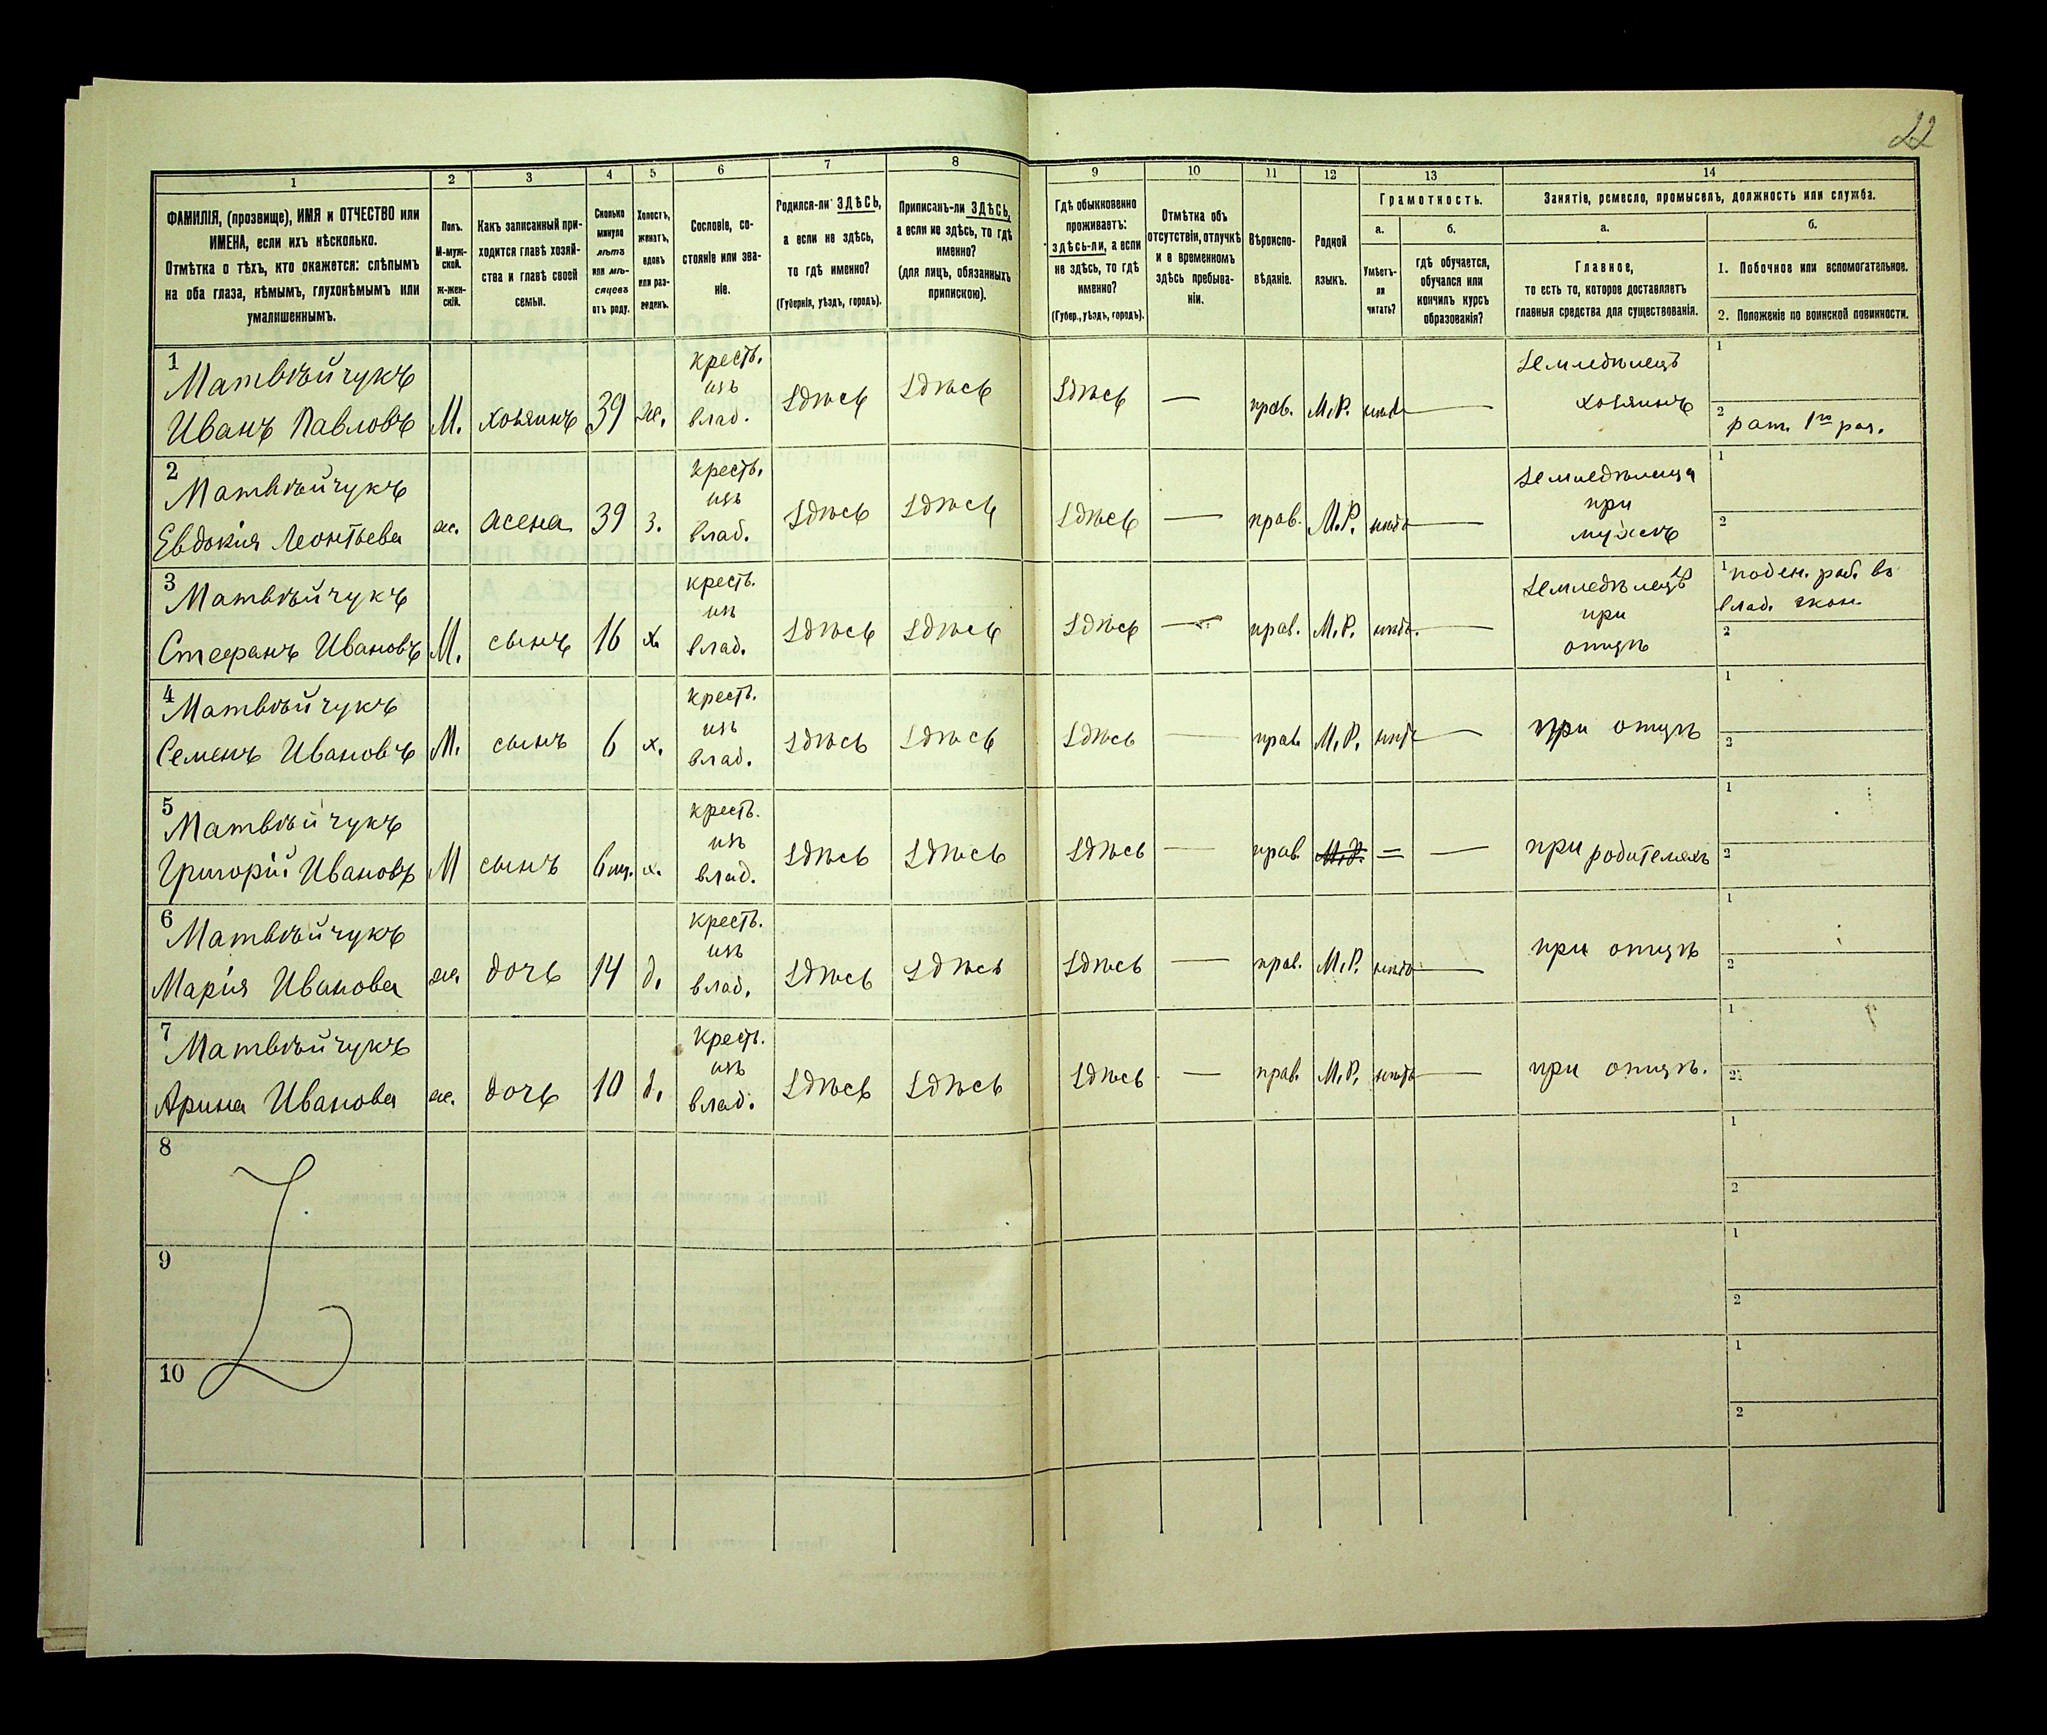 22
1 2 3 4 5 6 7 8 9 10 11 12 13 14
ФАМИЛІЯ, (прозвище), ИМЯ и ОТЧЕСТВО или ИМЕНА, если ихъ нѣсколько.
Отмѣтка о тѣхъ, кто окажется: слѣпымъ на оба глаза, нѣмымъ, глухонѣмымъ или умалишеннымъ.
Полъ. М-муж-ской. ж-жен-скій.
Какъ записанный при-ходится главѣ хозяй-ства и главѣ своей семьи.
Сколько минуло лѣтъ или мѣ-сяцевъ отъ роду.
Холостъ, женатъ, вдовъ или раз-веденъ.
Сословіе, со-стояніе или зва-ніе.
Родился-ли ЗДѢСЬ, а если не здѣсь, то гдѣ именно? (Губернія, уѣздъ, городъ).
Приписанъ-ли ЗДѢСЬ, а если не здѣсь, то гдѣ именно? (для лицъ, обязанныхъ припискою).
Гдѣ обыкновенно проживаетъ: здѣсь-ли, а если не здѣсь, то гдѣ именно? (Губер., уѣздъ, городъ).
Отмѣтка объ отсутствіи, отлучкѣ и о временномъ здѣсь пребыва-ніи.
Вѣроиспо-вѣданіе.
Родной языкъ.
Грамотность.
а. Умѣетъ-ли читать?
б. гдѣ обучается, обучался или кончилъ курсъ образованія?
Занятіе, ремесло, промыселъ, должность или служба.
а. Главное, то есть то, которое доставляетъ главныя средства для существованія.
б. 1. Побочное или вспомогательное.
2. Положеніе по воинской повинности.
1 Матвѣйчукъ Иванъ Павловъ М. хозяинъ 39 ж. крест. изъ влад. здѣсь здѣсь здѣсь — прав. М.Р. нѣтъ — земледѣлецъ хозяинъ 1
2 рат. 1го раз.
2 Матвѣйчукъ Евдокія Леонтьева ж. жена 39 з. крест. изъ влад. здѣсь здѣсь здѣсь — прав. М.Р. нѣтъ — земледѣлица при мужѣ 1
2
3 Матвѣйчукъ Стефанъ Ивановъ М. сынъ 16 х. крест. изъ влад. здѣсь здѣсь здѣсь — прав. М.Р. нѣтъ. — земледѣлецъ при отцѣ 1 поден. раб. въ влад. экон.
2
4 Матвѣйчукъ Семенъ Ивановъ М. сынъ 6 х. крест. изъ влад. здѣсь здѣсь здѣсь — прав. М.Р. нѣтъ — при отцѣ 1
2
5 Матвѣйчукъ Григорій Ивановъ М сынъ 6 м. х. крест. изъ влад. здѣсь здѣсь здѣсь — прав. М.Р. — — при родителяхъ 1
2
6 Матвѣйчукъ Марія Иванова ж. дочь 14 д. крест. изъ влад. здѣсь здѣсь здѣсь — прав. М.Р. нѣтъ — при отцѣ 1
2
7 Матвѣйчукъ Арина Иванова ж. дочь 10 д. крест. изъ влад. здѣсь здѣсь здѣсь — прав. М.Р. нѣтъ — при отцѣ. 1
2
8 1
2
9 1
2
10 1
2